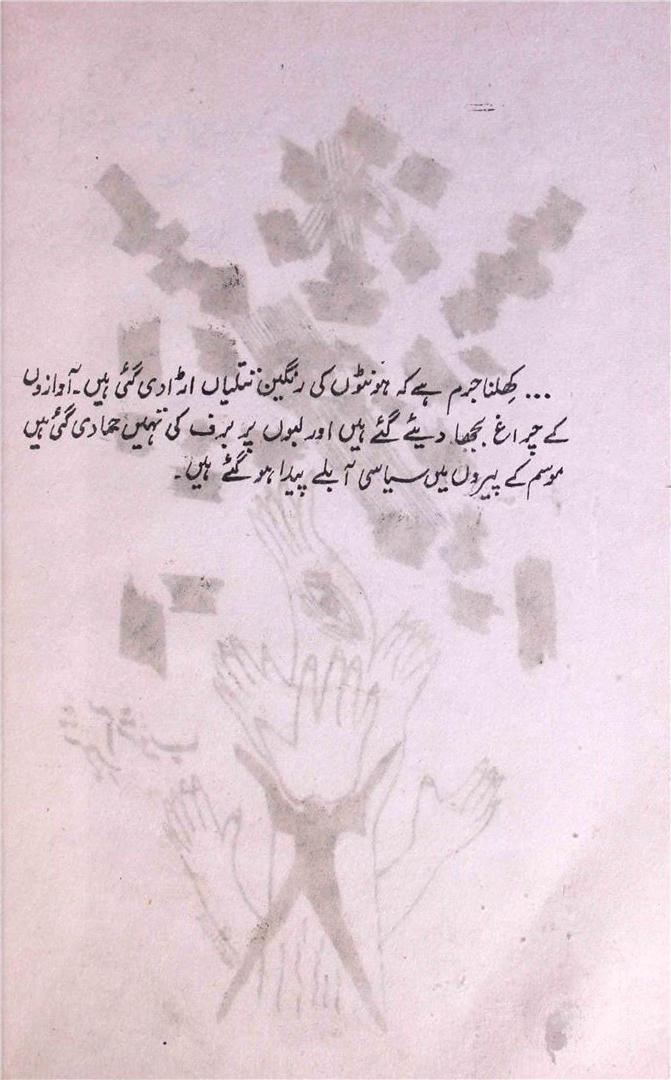 ... کِھلنا جرم ہے کہ ہونٹوں کی رنگین تتلیاں اڑا دی گئی ہیں۔ آوازوں
کے چراغ بجھا دیئے گئے ہیں اور لبوں پر برف کی تہیں جما دی گئی ہیں
موسم کے پیروں میں سیاسی آبلے پیدا ہو گئے ہیں۔